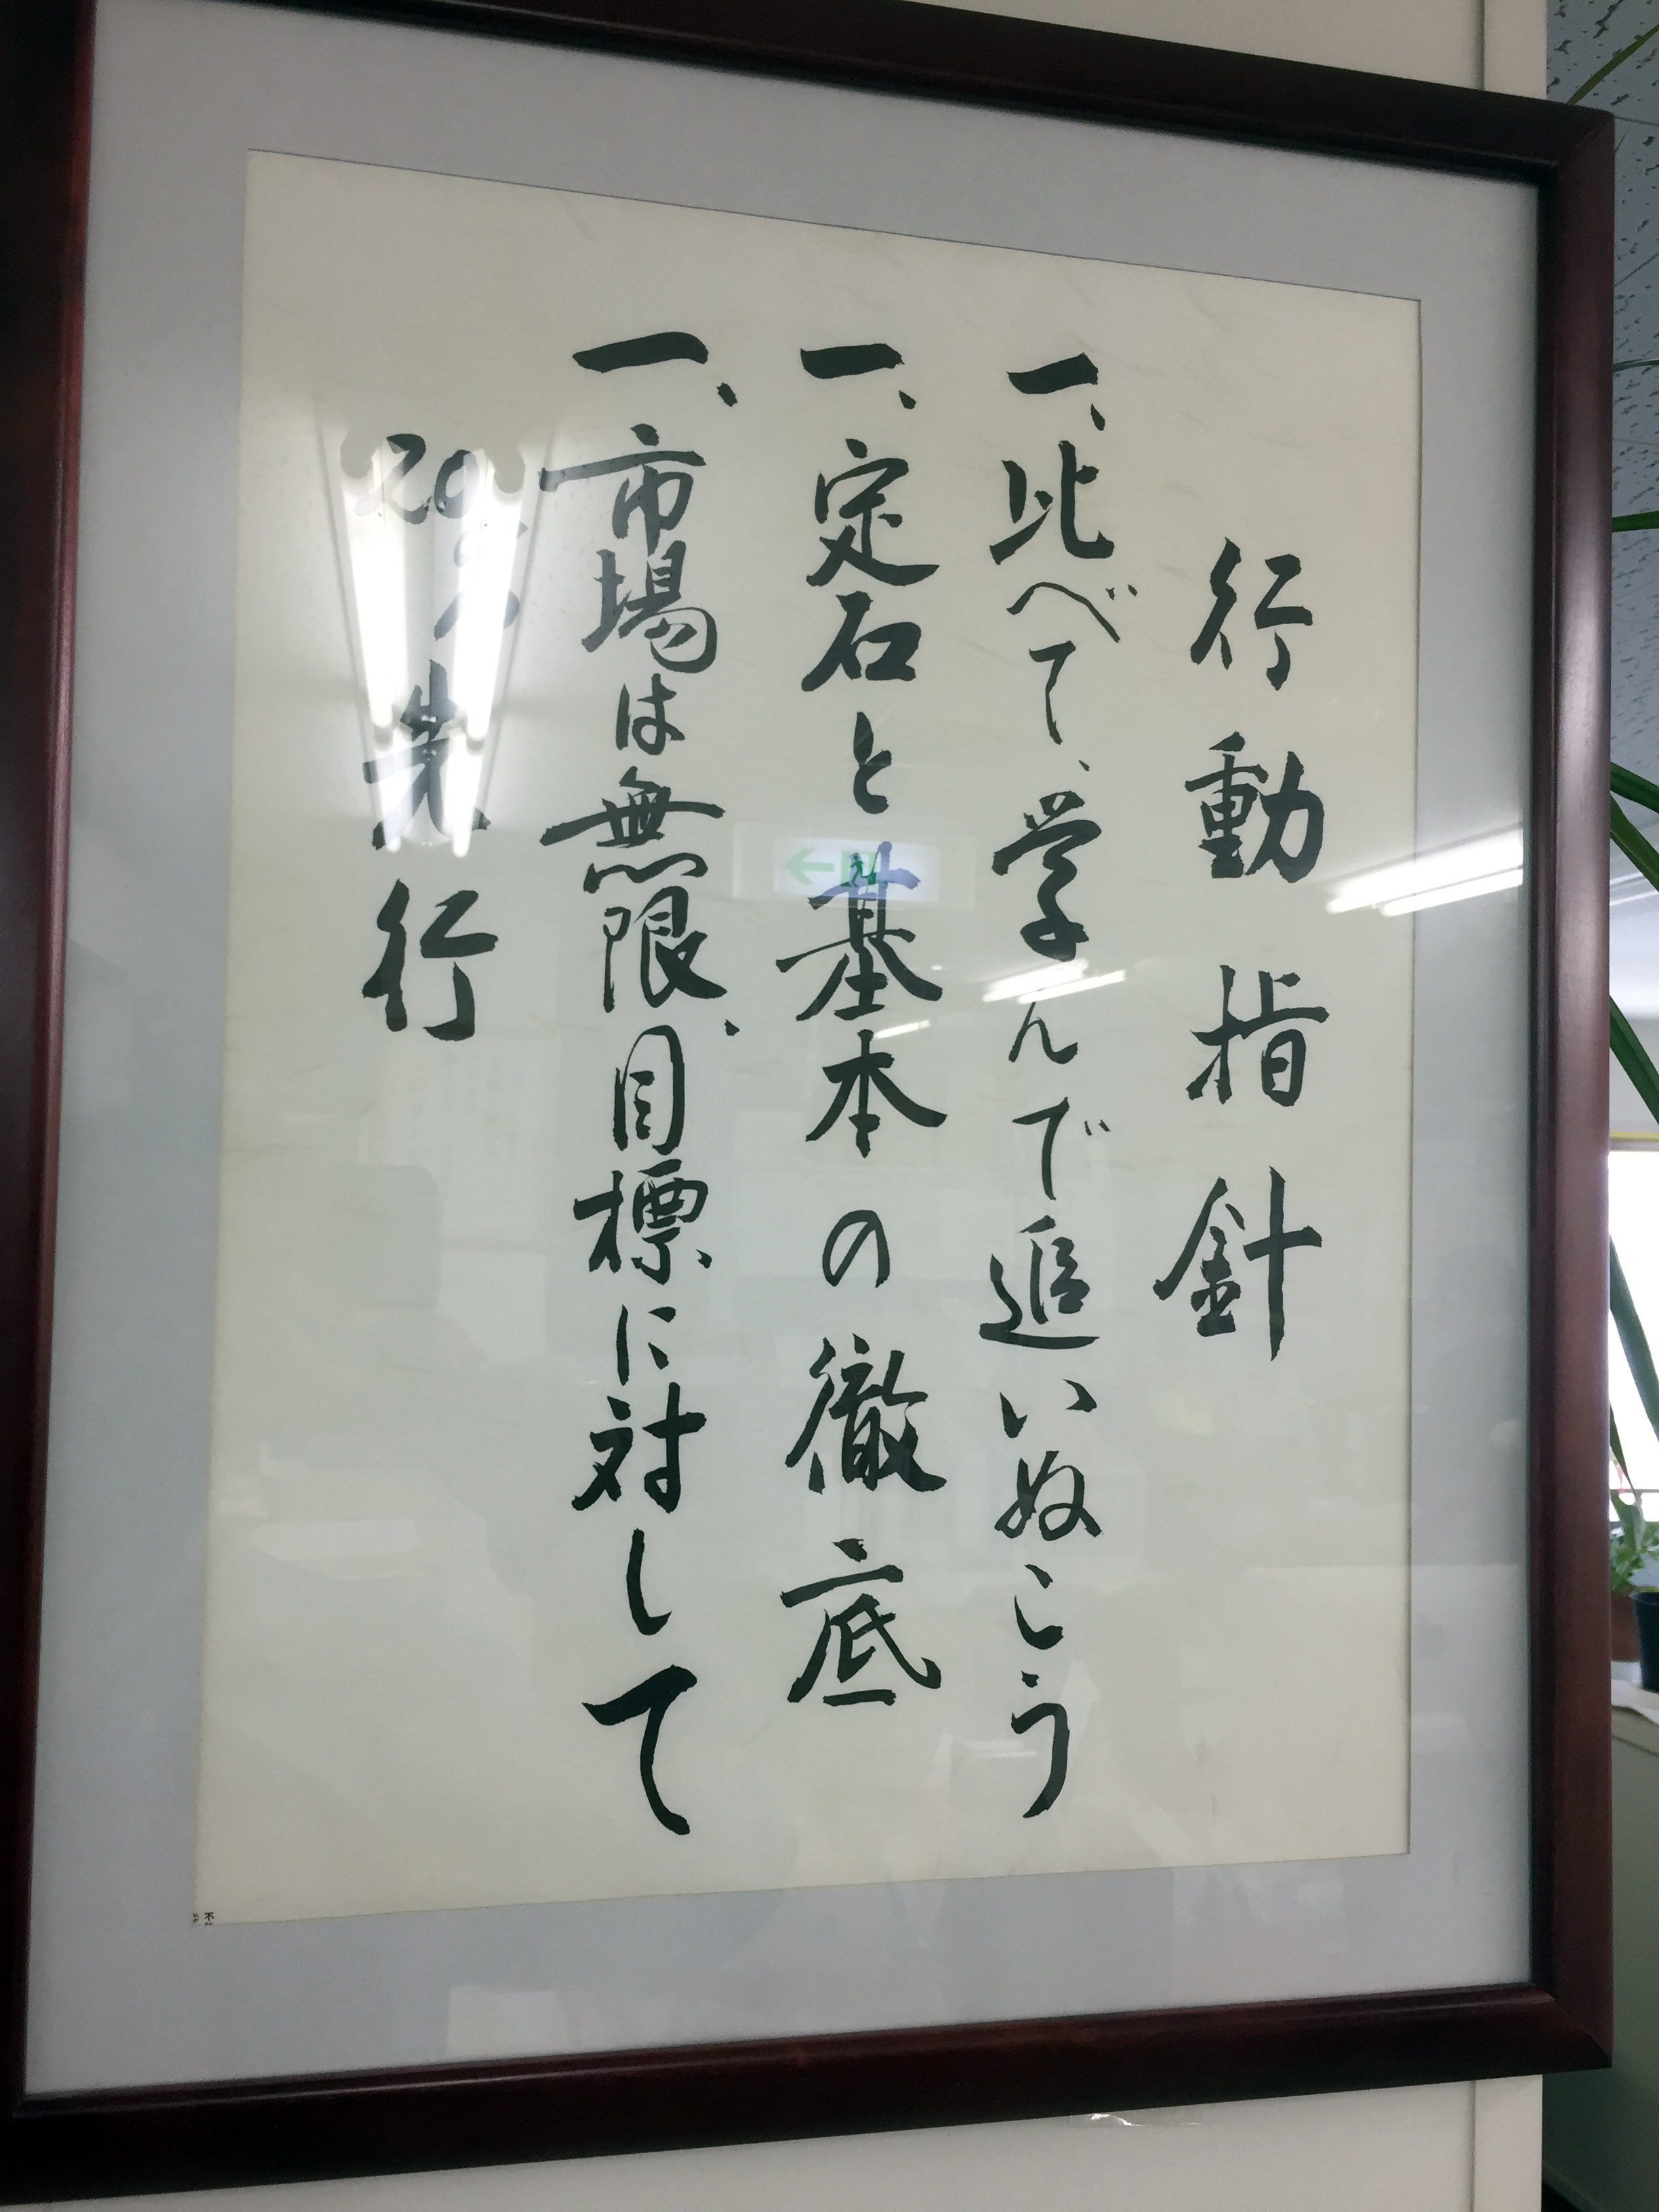 行動指針
一、比べて、学んで追いぬこう
一、定石と基本の徹底
一、市場は無限、目標に対して
20%先行